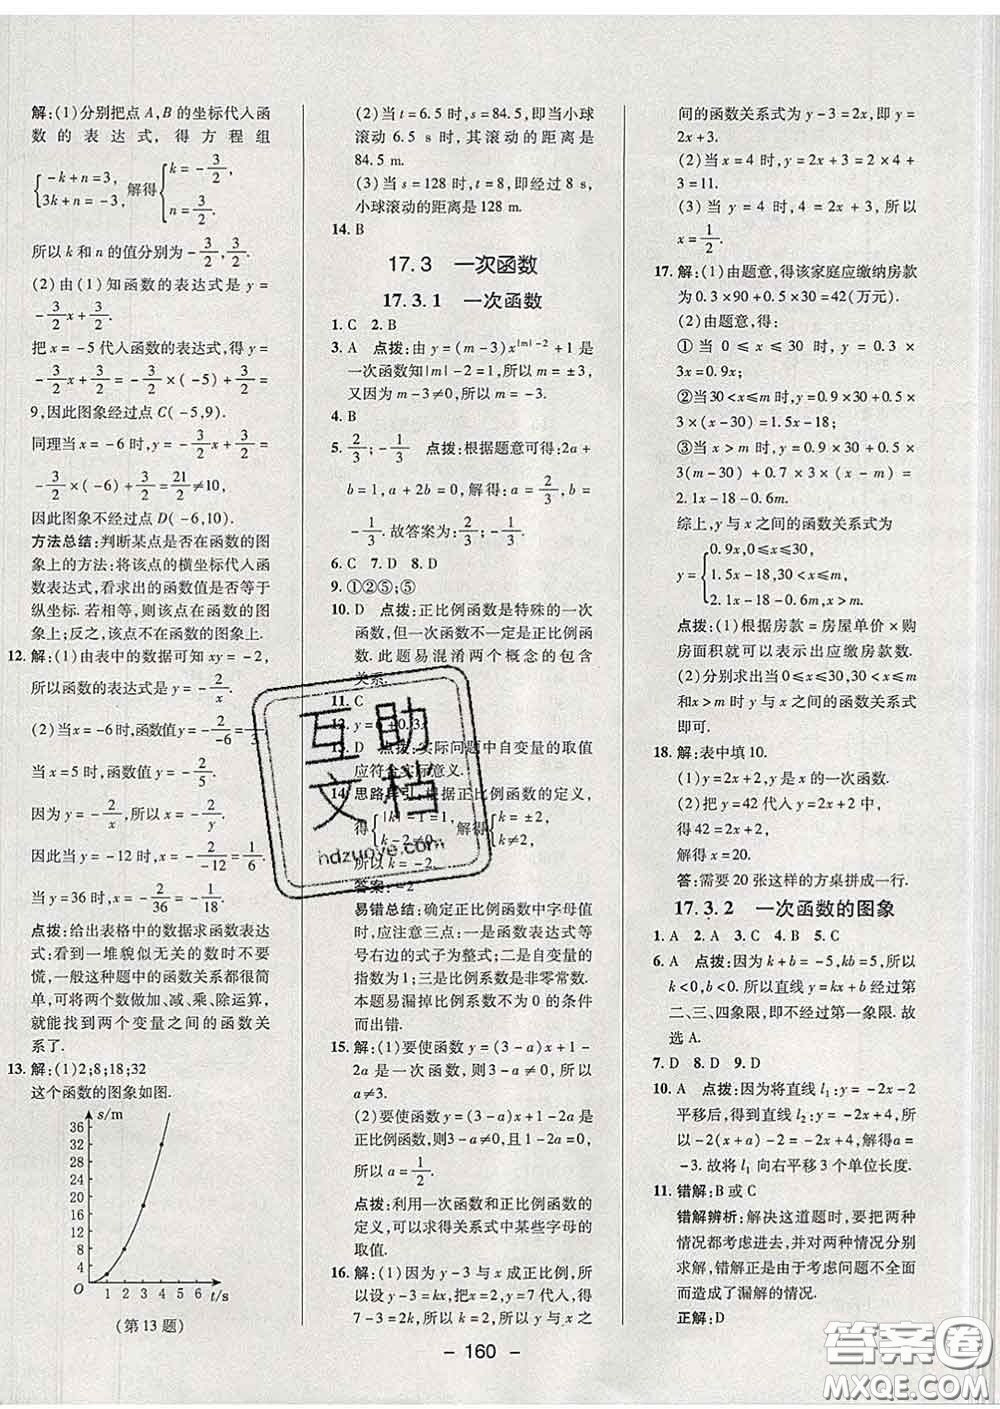 解:(1)分别把点 A,B 的坐标代入函
数的表达式,得方程组
{-k+n=3, 3k+n=-3, 解得{k=-3/2, n=3/2.
所以 k 和 n 的值分别为 -3/2, 3/2.
(2)由(1)知函数的表达式是 y=
-3/2 x+3/2.
把 x=-5 代入函数的表达式,得 y=
-3/2 x+3/2=-3/2×(-5)+3/2=
9,因此图象经过点 C(-5,9).
同理当 x=-6 时,y=-3/2 x+3/2=
-3/2×(-6)+3/2=21/2≠10,
因此图象不经过点 D(-6,10).
方法总结:判断某点是否在函数的图
象上的方法:将该点的横坐标代入函
数表达式,看求出的函数值是否等于
纵坐标.若相等,则该点在函数的图
象上;反之,该点不在函数的图象上.
12. 解:(1)由表中的数据可知 xy=-2,
所以函数的表达式是 y=-2/x.
(2)当 x=-6 时,函数值 y=-2/-6=1/3.
当 x=5 时,函数值 y=-2/5.
因为 y=-2/x,所以 x=-2/y.
因此当 y=-12 时,x=-2/-12=1/6.
当 y=36 时,x=-2/36=-1/18.
点拨:给出表格中的数据求函数表达
式:看到一堆貌似无关的数不要
慌,一般这种题中的函数关系都很简
单,可将两个数做加、减、乘、除运算,
就能找到两个变量之间的函数关
系了.
13. 解:(1)2;8;18;32
这个函数的图象如图.
s/m
36
32
28
24
20
16
12
8
4
O 1 2 3 4 5 6 t/s
(第 13 题)
(2)当 t=6.5 时,s=84.5,即当小球
滚动 6.5 s 时,其滚动的距离是
84.5 m.
(3)当 s=128 时,t=8,即经过 8 s,
小球滚动的距离是 128 m.
14. B
17.3 一次函数
17.3.1 一次函数
1. C 2. B
3. A 点拨:由 y=(m-3)x^{|m|-2}+1 是
一次函数知|m|-2=1,所以 m=±3,
又因为 m-3≠0,所以 m=-3.
4. B
5. 2/3;-1/3 点拨:根据题意可得:2a+
b=1,a+2b=0,解得:a=2/3,b=
-1/3.故答案为:2/3;-1/3.
6. C 7. D 8. D
9. ①②⑤;⑤
10. D 点拨:正比例函数是特殊的一次
函数,但一次函数不一定是正比例函
数.此题易混淆两个概念的包含
关系.
11. C
12. y=6+0.3x
13. D 点拨:实际问题中自变量的取值
应符合实际意义.
14. 思路导引:根据正比例函数的定义,
得{|k|-1=1, k-2≠0, 解得{k=±2, k≠2,
所以 k=-2.
答案:-2
易错总结:确定正比例函数中字母值
时,应注意三点:一是函数表达式等
号右边的式子为整式;二是自变量的
指数为1;三是比例系数是非零常数.
本题易漏掉比例系数不为 0 的条件
而出错.
15. 解:(1)要使函数 y=(3-a)x+1-
2a 是一次函数,则3-a≠0,所以 a
≠3.
(2)要使函数 y=(3-a)x+1-2a 是
正比例函数,则3-a≠0,且1-2a=0,
所以 a=1/2.
点拨:利用一次函数和正比例函数的
定义,可以求得关系式中某些字母的
取值.
16. 解:(1)因为 y-3 与 x 成正比例,所
以设 y-3=kx,把 x=2,y=7 代入,得
7-3=2k,所以 k=2,所以 y 与 x 之
间的函数关系式为 y-3=2x,即 y=
2x+3.
(2)当 x=4 时,y=2x+3=2×4+
3=11.
(3)当 y=4 时,4=2x+3,所以
x=1/2.
17. 解:(1)由题意,得该家庭应缴纳房款
为 0.3×90+0.5×30=42(万元).
(2)由题意,得:
①当 0≤x≤30 时,y=0.3×
3x=0.9x;
②当30<x≤m时,y=0.9×30+0.5
×3×(x-30)=1.5x-18;
③当 x>m 时,y=0.9×30+0.5×3
×(m-30)+0.7×3×(x-m)=
2.1x-18-0.6m.
综上,y 与 x 之间的函数关系式为
y={0.9x,0≤x≤30, 1.5x-18,30<x≤m, 2.1x-18-0.6m,x>m.
点拨:(1)根据房款=房屋单价×购
房面积就可以表示出应缴房款.
(2)分别求出当 0≤x≤30,30<x≤m
和 x>m 时 y 与 x 之间的函数关系式
即可.
18. 解:表中填 10.
(1)y=2x+2,y 是 x 的一次函数.
(2)把 y=42 代入 y=2x+2 中,
得 42=2x+2,
解得 x=20.
答:需要 20 张这样的方桌拼成一行.
17.3.2 一次函数的图象
1. A 2. A 3. C 4. B 5. C
6. A 点拨:因为 k+b=-5,kb=5,所以
k<0,b<0.所以直线 y=kx+b 经过第
二、三、四象限,即不经过第一象限.故
选 A.
7. D 8. D 9. D
10. A 点拨:因为将直线 l₁:y=-2x-2
平移后,得到直线 l₂:y=-2x+4,所
以-2(x+a)-2=-2x+4,解得 a=
-3.故将 l₁ 向右平移 3 个单位长度.
11. 错解:B 或 C
错解辨析:解决这道题时,要把两种
情况都考虑进去,并对两种情况分别
求解,错解正是由于考虑问题不全面
而造成了漏解的情况.
正解:D
- 160 -
互助
文档
hdzuoye.com
答案圈
MXQE.COM